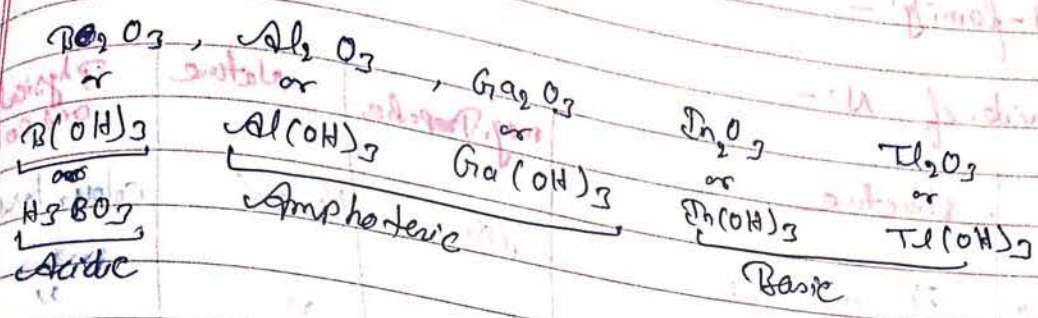 B2O3 , Al2O3 , Ga2O3 In2O3 Tl2O3
or or or or or
B(OH)3 Al(OH)3 Ga(OH)3 In(OH)3 Tl(OH)3
or
H3BO3
Acidic Amphoteric Basic